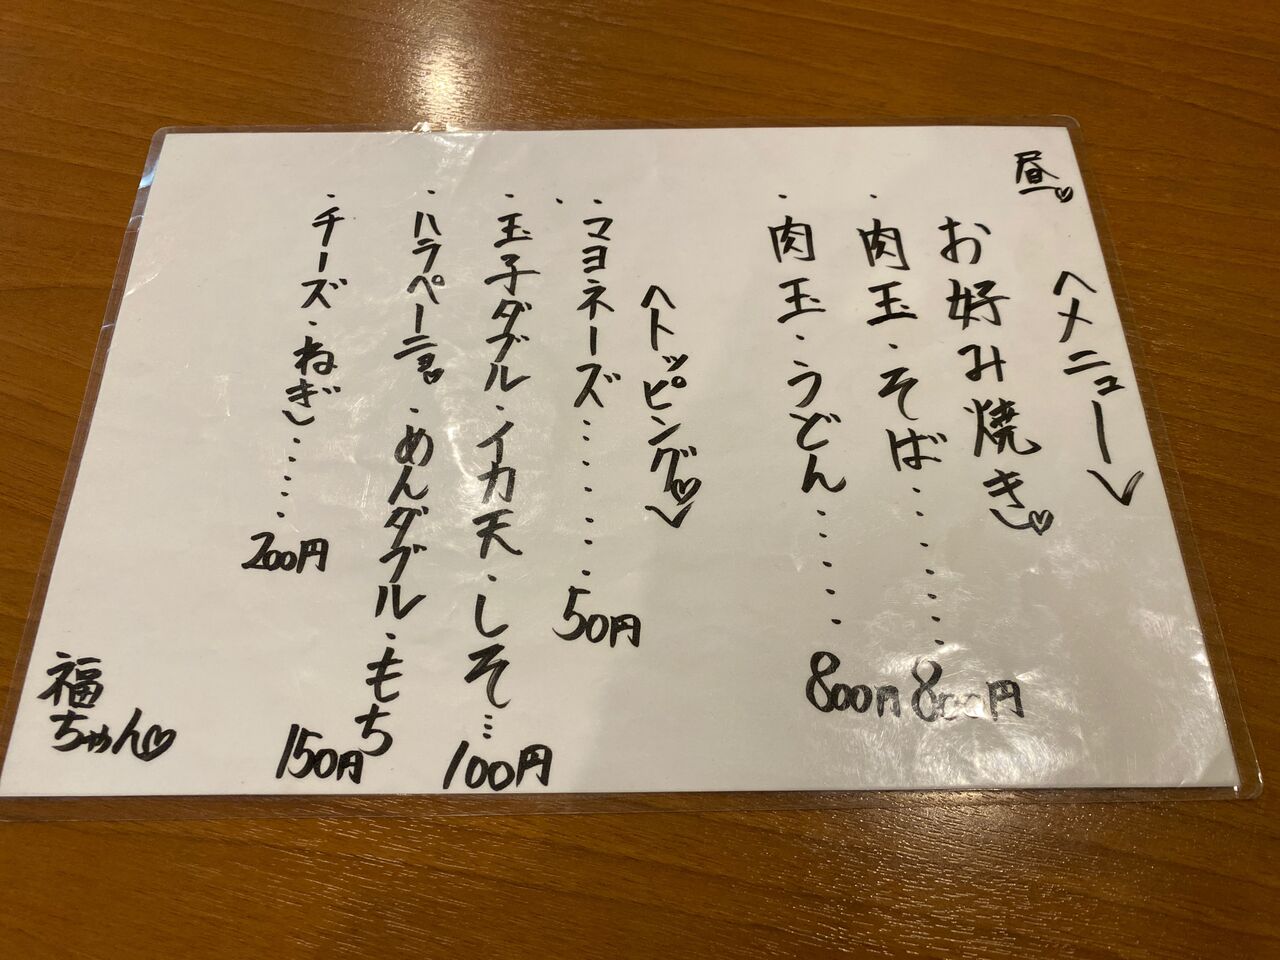 昼
〈メニュー〉
お好み焼き♡
・肉玉・そば・・・・・800円
・肉玉・うどん・・・・・800円
〈トッピング♡〉
・マヨネーズ・・・・・・・50円
・玉子ダブル・イカ天・しそ…100円
・ハラペーニョ・めんダブル・もち150円
・チーズ・ねぎ・・・・・200円
福ちゃん♡